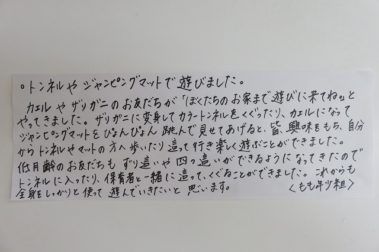 ○トンネルやジャンピングマットで遊びました。
カエルやザリガニのお友だちが「ぼくたちのお家まで遊びに来てね。」と
やってきました。ザリガニに変身してカラートンネルをくぐったり、カエルになって
ジャンピングマットをぴょんぴょん跳んで見せてあげると、皆、興味をもち、自分
からトンネルやマットの方へ歩いたり這って行き楽しく遊ぶことができました。
低月齢のお友だちもずり這いや四つ這いができるようになってきたので
トンネルに入ったり、保育者と一緒に這って、くぐることができました。これからも
全身をしっかりと使って遊んでいきたいと思います。 〈もも年少組〉